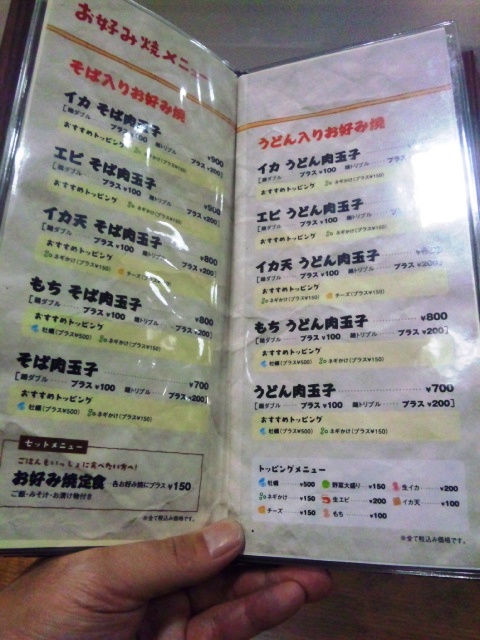 お好み焼メニュー
そば入りお好み焼
イカ そば肉玉子 ¥900
[麺ダブル プラス¥100 麺トリプル プラス¥200]
おすすめトッピング
ネギかけ(プラス¥150)
エビ そば肉玉子 ¥900
[麺ダブル プラス¥100 麺トリプル プラス¥200]
おすすめトッピング
ネギかけ(プラス¥150)
イカ天 そば肉玉子 ¥800
[麺ダブル プラス¥100 麺トリプル プラス¥200]
おすすめトッピング
ネギかけ(プラス¥150) チーズ(プラス¥150)
もち そば肉玉子 ¥800
[麺ダブル プラス¥100 麺トリプル プラス¥200]
おすすめトッピング
牡蠣(プラス¥500) ネギかけ(プラス¥150)
そば肉玉子 ¥700
[麺ダブル プラス¥100 麺トリプル プラス¥200]
おすすめトッピング
牡蠣(プラス¥500) ネギかけ(プラス¥150)
セットメニュー
ごはんもいっしょに食べたい方へ!
お好み焼定食 …各お好み焼にプラス ¥150
ご飯・みそ汁・お漬け物付き
※全て税込み価格です。
うどん入りお好み焼
イカ うどん肉玉子
[麺ダブル プラス¥100 麺トリプル プラス
おすすめトッピング
ネギかけ(プラス¥150)
エビ うどん肉玉子
[麺ダブル プラス¥100 麺トリプル プラス
おすすめトッピング
ネギかけ(プラス¥150)
イカ天 うどん肉玉子
[麺ダブル プラス¥100 麺トリプル プラス¥200]
おすすめトッピング
ネギかけ(プラス¥150) チーズ(プラス¥150)
もち うどん肉玉子 ¥800
[麺ダブル プラス¥100 麺トリプル プラス¥200]
おすすめトッピング
牡蠣(プラス¥500) ネギかけ(プラス¥150)
うどん肉玉子 ¥700
[麺ダブル プラス¥100 麺トリプル プラス¥200]
おすすめトッピング
牡蠣(プラス¥500) ネギかけ(プラス¥150)
トッピングメニュー
牡蠣 ¥500 野菜大盛り ¥150 生イカ ¥200
ネギかけ ¥150 生エビ ¥200 イカ天 ¥100
チーズ ¥150 もち ¥100
※全て税込み価格です。